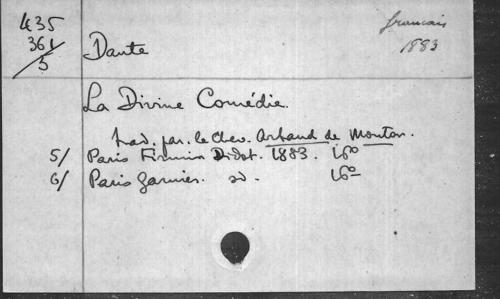 435
361
5
francais
1883
Dante
La Divine Comédie.
trad. par. le Chev. Artaud de Montor.
5/ Paris Firmin Didot. 1883. 16º
6/ Paris Garnier. sd. 16º